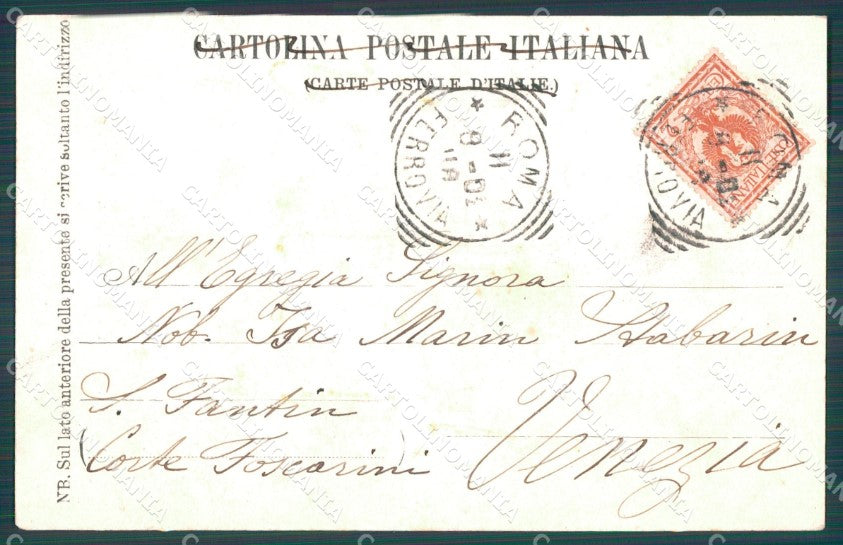 CARTOLINA POSTALE ITALIANA
(CARTE POSTALE D'ITALIE.)
ROMA
FERROVIA
11
All'Egregia Signora
Nob. Isa Marin Stabarin
S. Fantin
(Corte Foscarini)
Venezia
NB. Sul lato anteriore della presente si scrive soltanto l'indirizzo
CARTOLINOMANIA